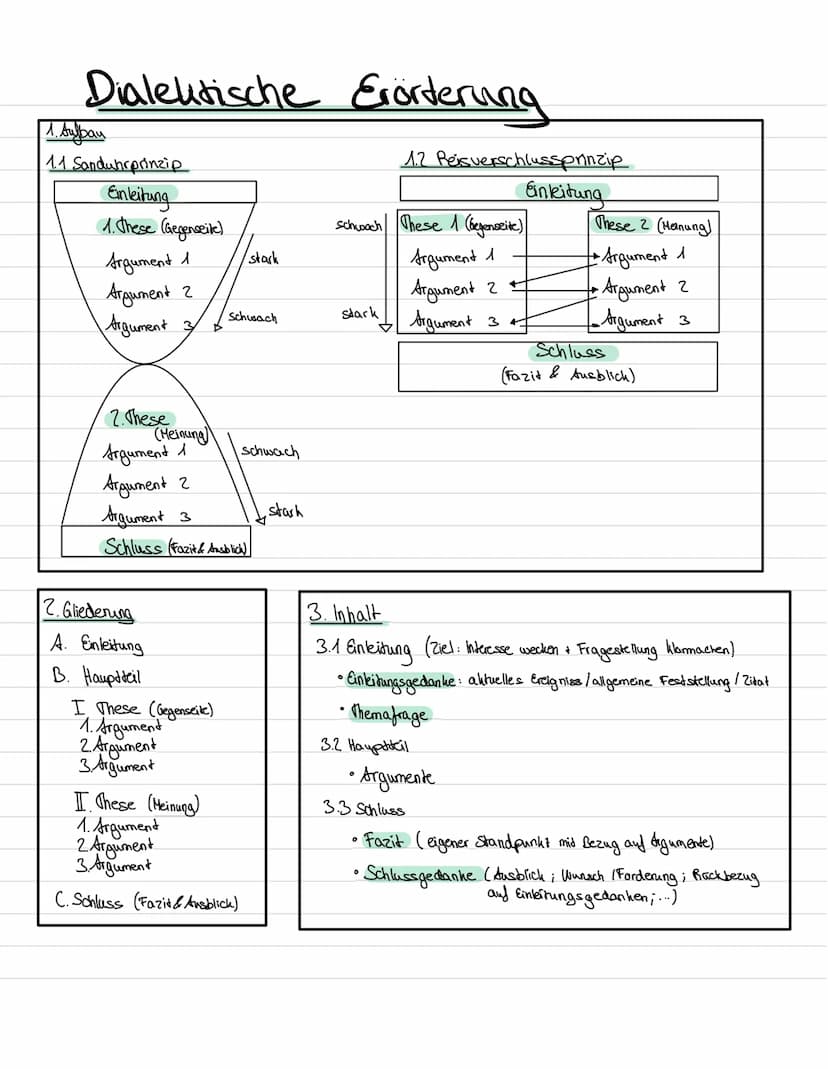 Dialektische Erörterung
1. Aufbau
1.1 Sanduhrprinzip
Einleitung
1. These (Gegenseite)
Argument 1
Argument 2
Argument 3
stark
schwach
2. These
(Meinung)
Argument 1
Argument 2
Argument 3
schwach
stark
Schluss (Fazit & Ausblick)
1.2 Reisverschlussprinzip
Einleitung
schwach
stark
These 1 (Gegenseite)
Argument 1
Argument 2
Argument 3
These 2 (Meinung)
Argument 1
Argument 2
Argument 3
Schluss
(Fazit & Ausblick)
2. Gliederung
A. Einleitung
B. Hauptteil
I These (Gegenseite)
1. Argument
2. Argument
3. Argument
II. These (Meinung)
1. Argument
2 Argument
3. Argument
C. Schluss (Fazit & Ausblick)
3. Inhalt
3.1 Einleitung (Ziel: Interesse wecken + Fragestellung klarmachen)
• Einleitungsgedanke: aktuelles Ereigniss / allgemeine Feststellung / Zitat
• Themafrage
3.2 Hauptteil
• Argumente
3.3 Schluss
• Fazit (eigener Standpunkt mit Bezug auf Argumente)
• Schlussgedanke (Ausblick; Wunsch / Forderung; Rückbezug
auf Einleitungsgedanken; ...)